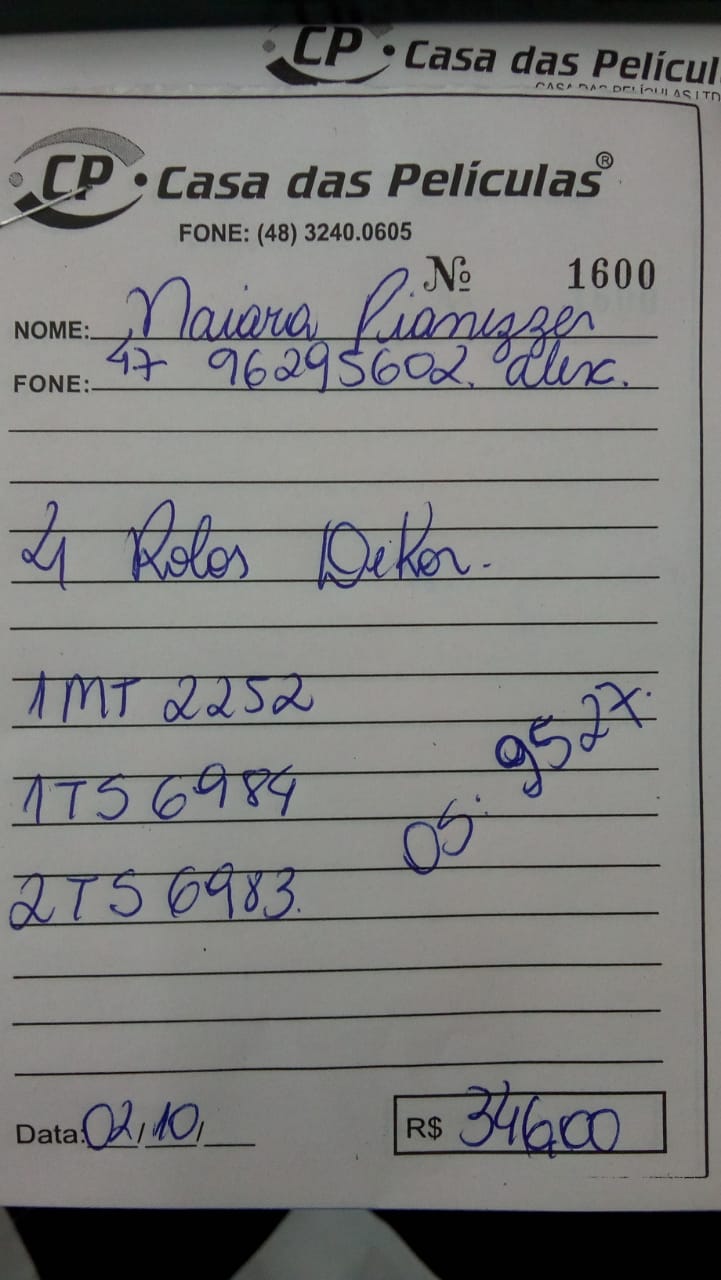 CP • Casa das Películ
CASA DAS PELÍCULAS LTD
CP • Casa das Películas®
FONE: (48) 3240.0605
Nº 1600
NOME: Naiara Pianezzer
FONE: 47 96295602. Alex.
4 Rolos Dekor.
1 MT 2252
1 TS 6984
2 TS 6983.
OS: 9527.
Data: 02/10/
R$ 346,00